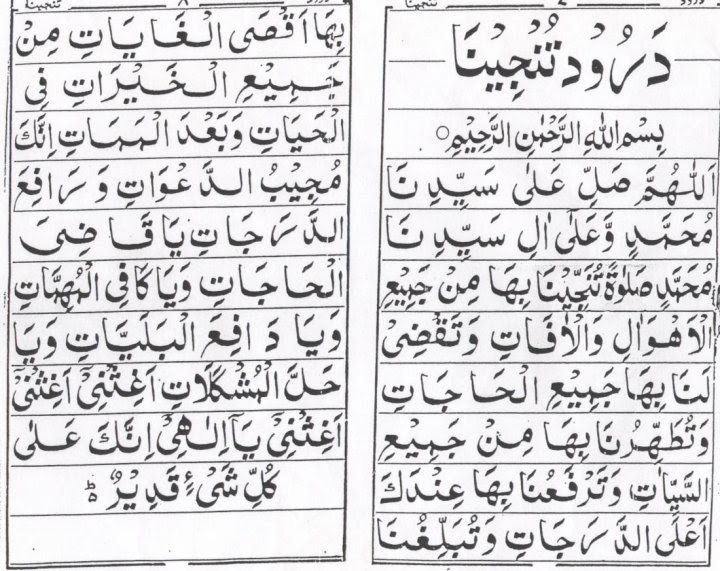 دَرُود تُنَجِّينَا
بِسْمِ اللهِ الرَّحْمٰنِ الرَّحِيْمِ○
اَللّٰهُمَّ صَلِّ عَلٰى سَيِّدِنَا
مُحَمَّدٍ وَّعَلٰٓى اٰلِ سَيِّدِنَا
مُحَمَّدٍ صَلٰوةً تُنَجِّيْنَا بِهَا مِنْ جَمِيْعِ
الْاَهْوَالِ وَالْاٰفَاتِ وَتَقْضِىْ
لَنَا بِهَا جَمِيْعِ الْحَاجَاتِ
وَتُطَهِّرُنَا بِهَا مِنْ جَمِيْعِ
السَّيِّاٰتِ وَتَرْفَعُنَا بِهَا عِنْدَكَ
اَعْلَى الدَّرَجَاتِ وَتُبَلِّغُنَا
بِهَا اَقْصَى الْغَايَاتِ مِنْ
جَمِيْعِ الْخَيْرَاتِ فِى
الْحَيَاتِ وَبَعْدَ الْمَمَاتِ اِنَّكَ
مُجِيْبُ الدَّعْوَاتِ وَرَافِعَ
الدَّرَجَاتِ يَا قَاضِىَ
الْحَاجَاتِ وَيَا كَافِى الْمُهِمَّاتِ
وَيَا دَافِعَ الْبَلَيَّاتِ وَيَا
حَلَّ الْمُشْكَلَاتِ اَغِثْنِىْ اَغِثْنِىْ
اَغِثْنِىْ يَآ اِلٰهِىْ اِنَّكَ عَلٰى
كُلِّ شَىْءٍ قَدِيْرٌ ؕ